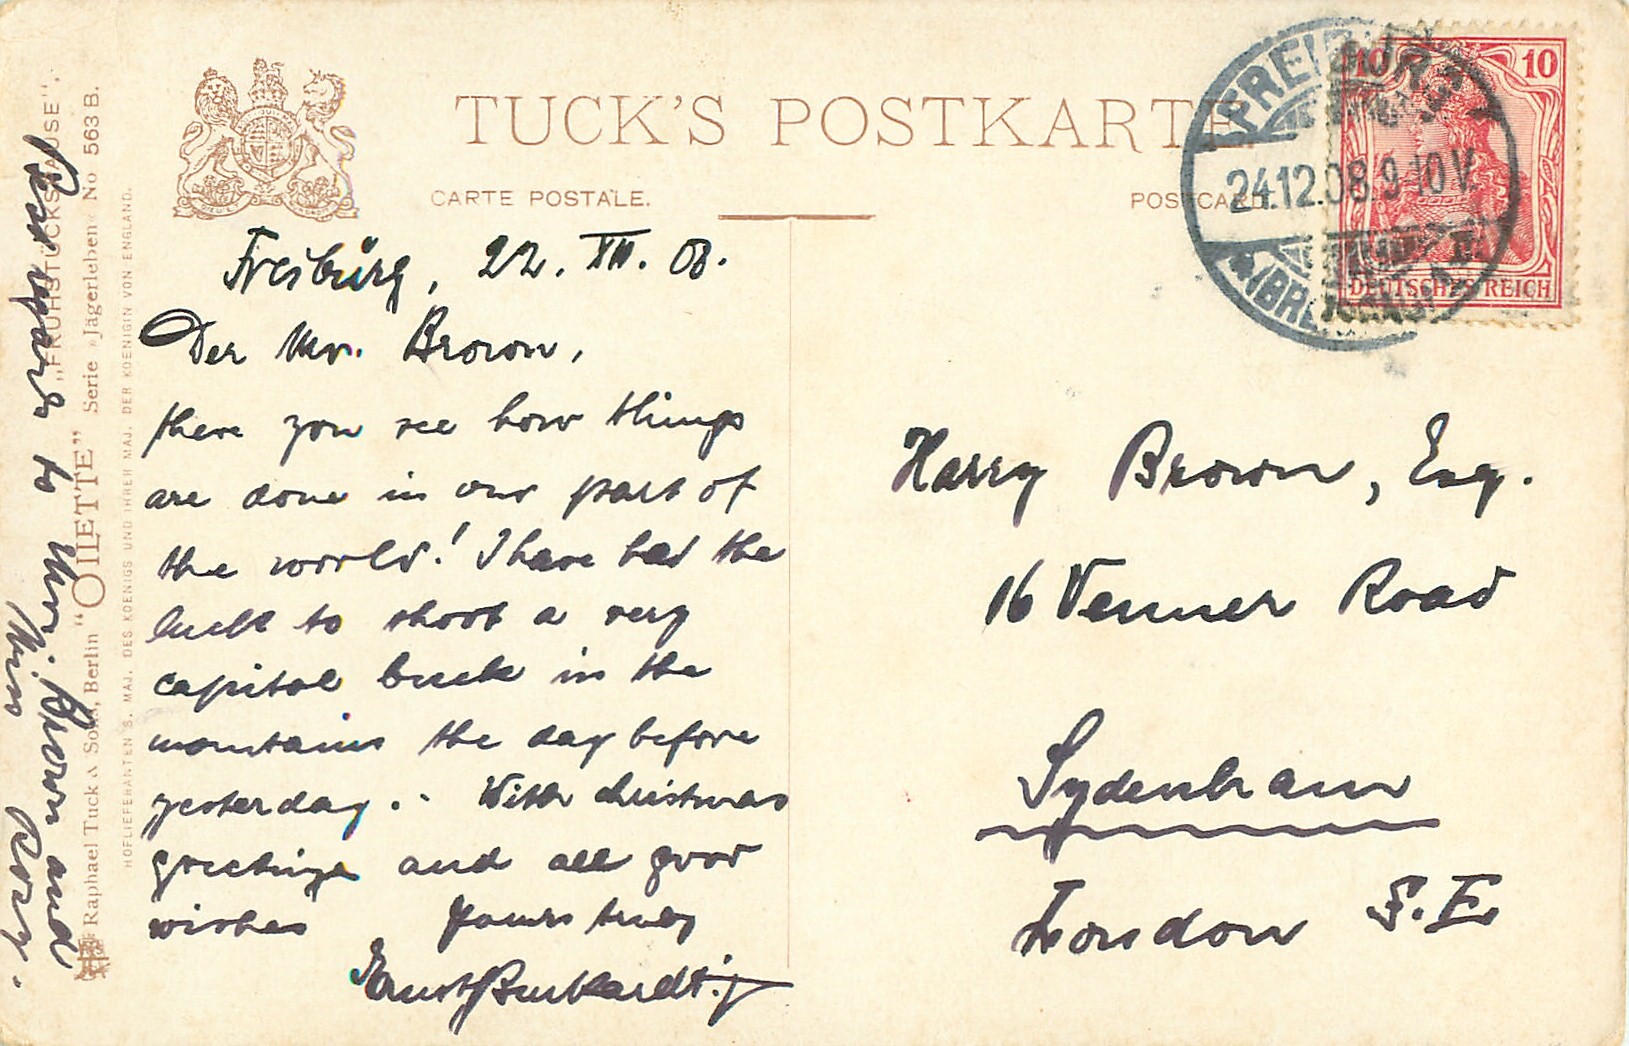 TUCK'S POSTKARTE
CARTE POSTALE.
POSTCARD
FREIBURG
24.12.08.9-10V.
(BREISGAU)
10 10
DEUTSCHES REICH
Freiburg, 22. XII. 08.
Der Mr. Brown,
there you see how things
are done in our part of
the world! I have had the
luck to shoot a very
capital buck in the
mountains the day before
yesterday. With christmas
greetings and all good
wishes Yours truly
Ernst Burkardt jr
Best regards to Mrs. Brown and
Miss Rosy.
Harry Brown, Esq.
16 Venner Road
Sydenham
London S.E.
„FRÜHSTÜCKSPAUSE".
Raphael Tuck & Sons, Berlin "OILETTE" Serie »Jägerleben« No 563 B.
HOFLIEFERANTEN S. MAJ. DES KOENIGS UND IHRER MAJ. DER KOENIGIN VON ENGLAND.